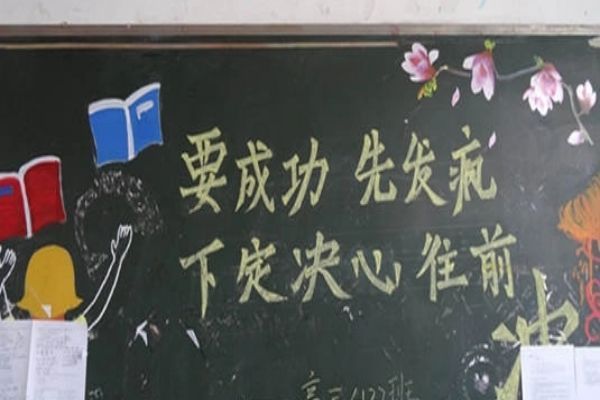 要成功 先发疯
下定决心 往前
冲
高三(122班